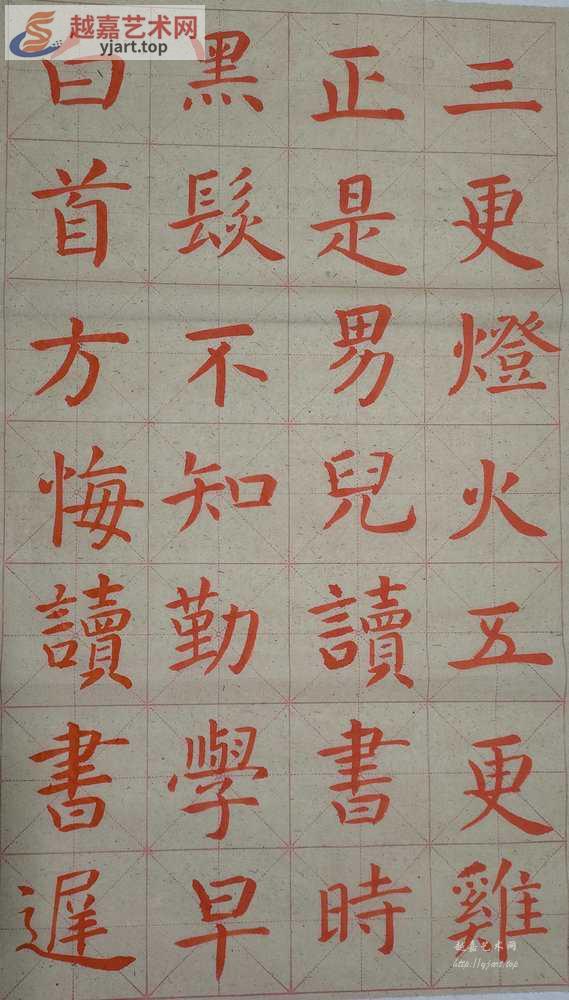 三更燈火五更雞
正是男兒讀書時
黑髮不知勤學早
白首方悔讀書遲
越嘉艺术网
yjart.top
越嘉艺术网
http://yjart.top